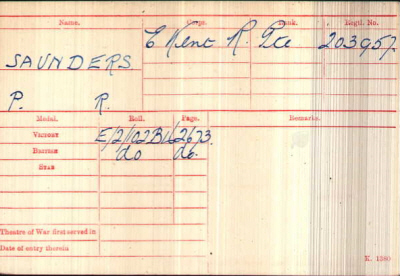 Name. Corps. Rank. Regtl. No.
E Kent R. Pte 203957.
SAUNDERS
P. R.
Medal. Roll. Page. Remarks.
VICTORY E/2/102B16 2673.
BRITISH do do.
STAR
Theatre of War first served in
Date of entry therein
K. 1380